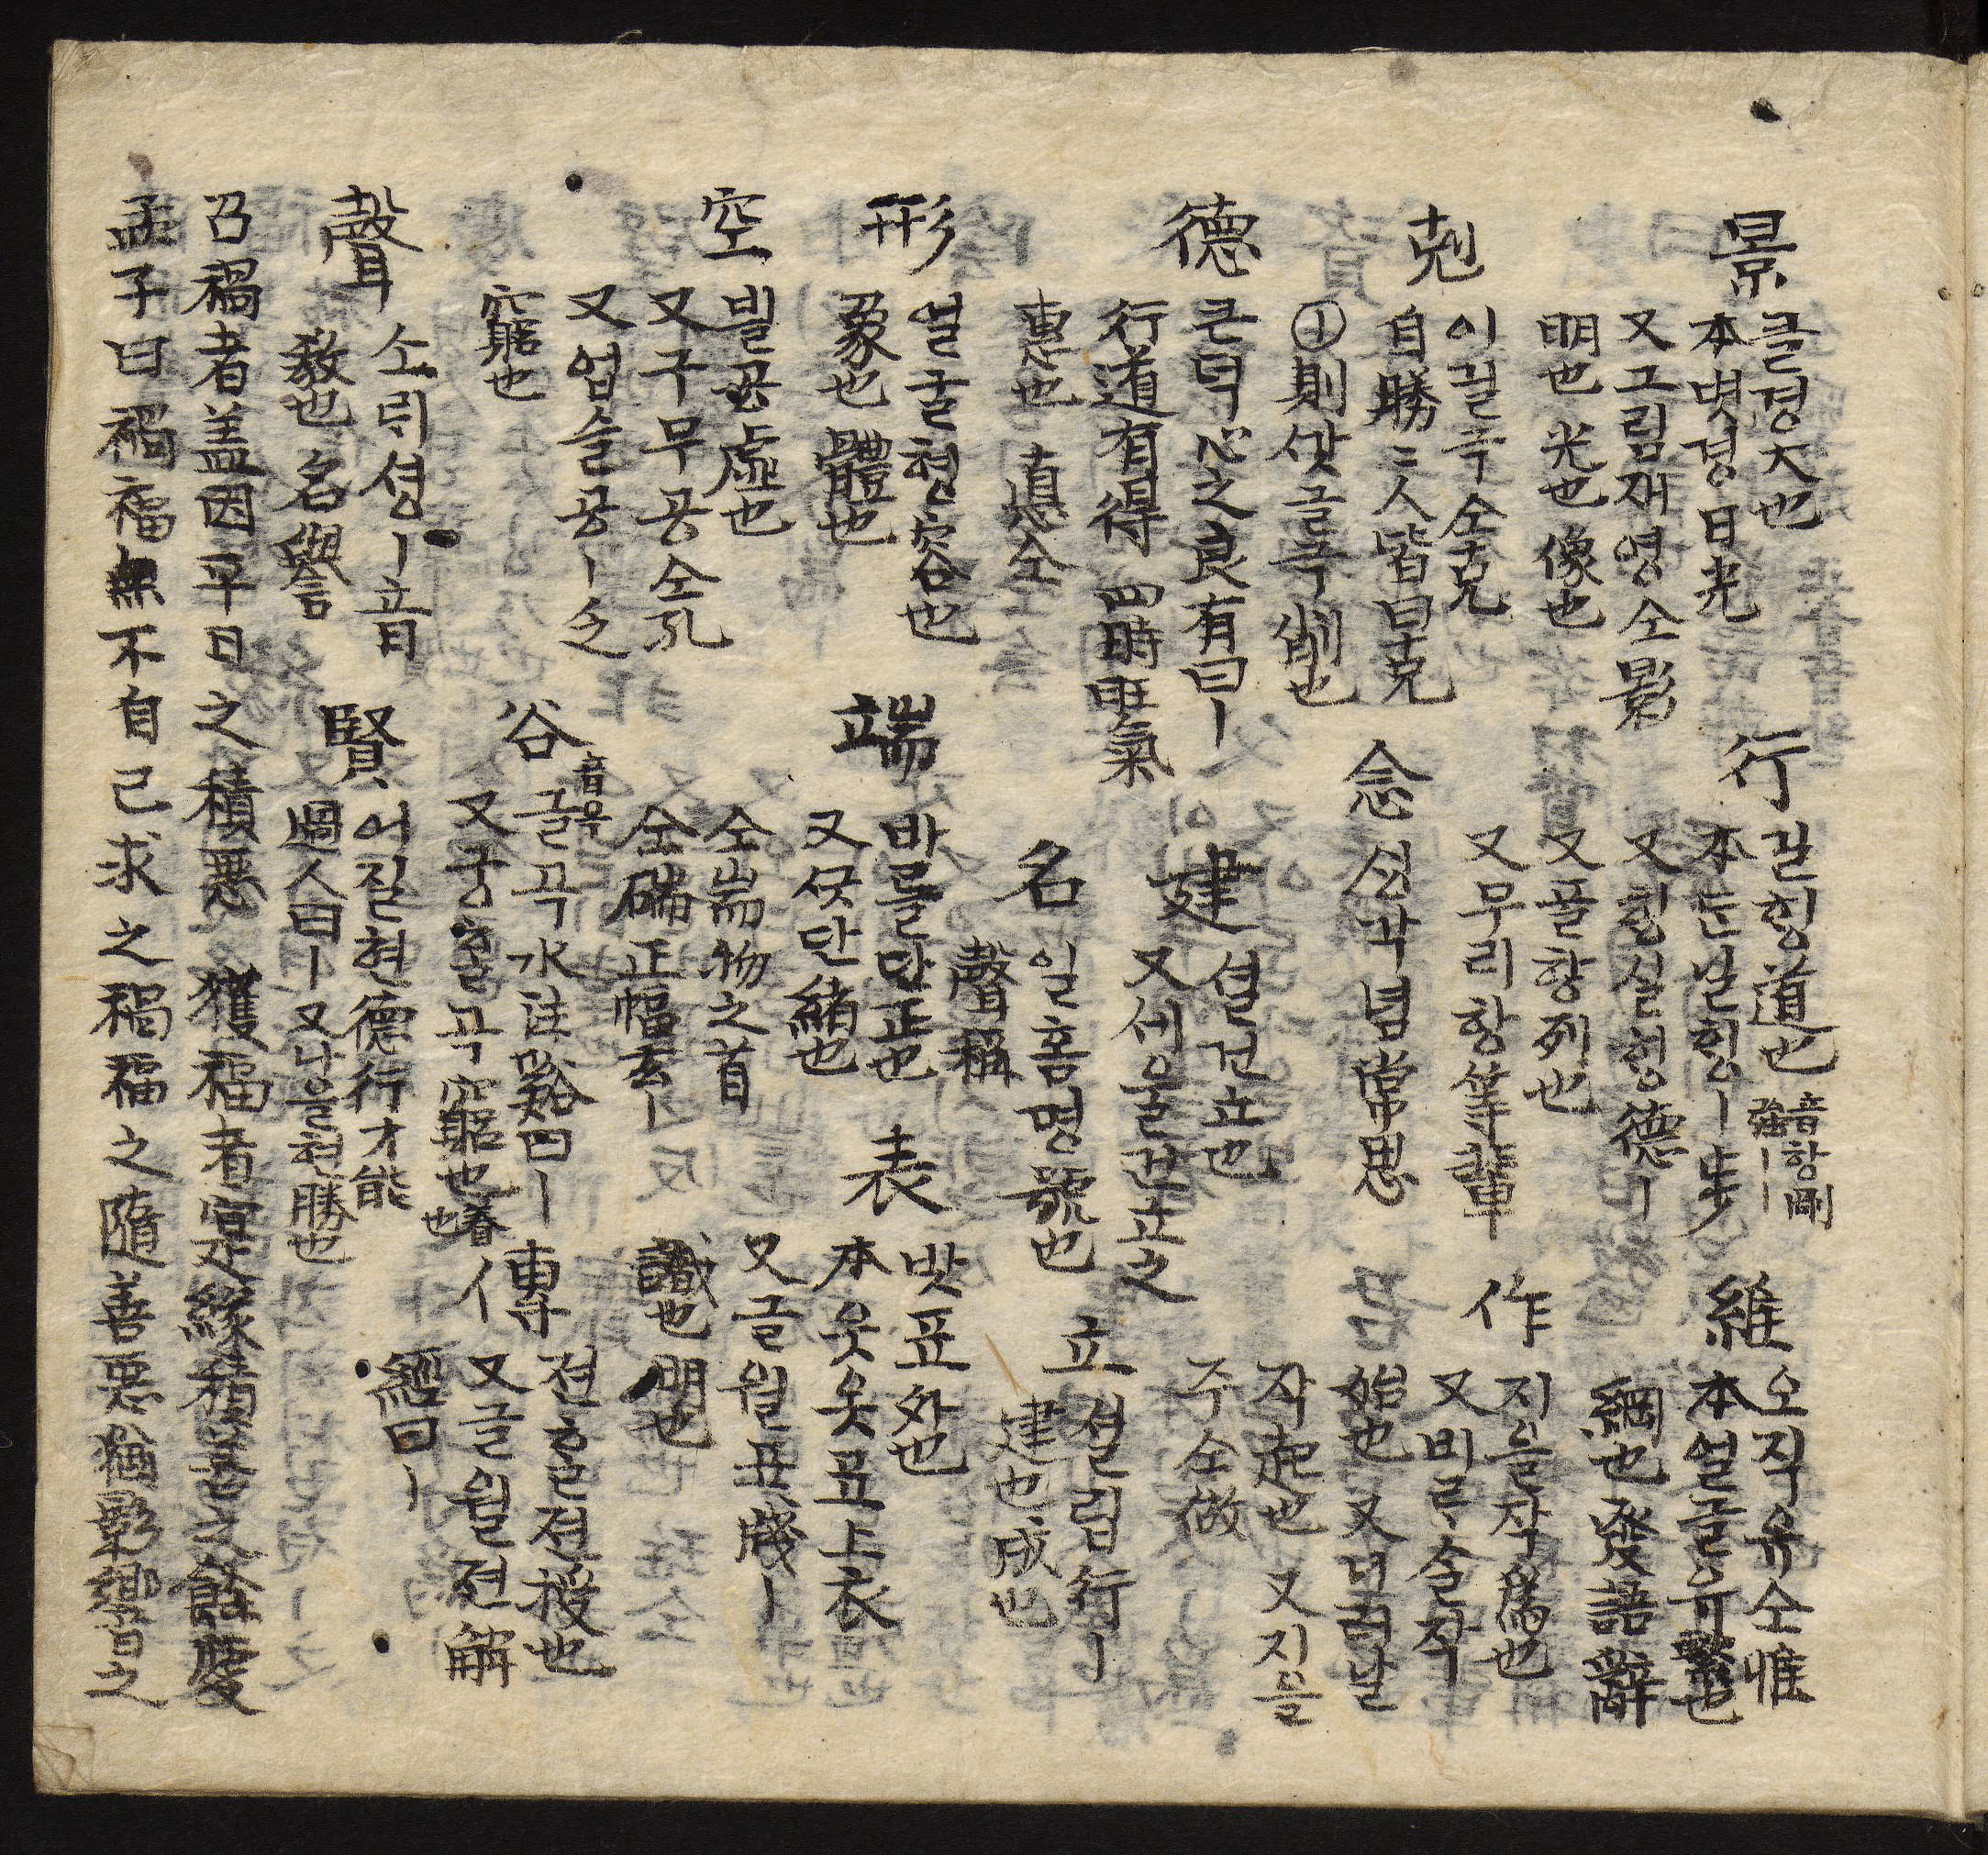 景 클경大也
本볏경日光
又그림재영仝影
明也 光也 像也
行 길힝道也 音항剛強ㅣㅣ
本둔닐힝ㅣ步
又힝실힝德ㅣ
又골항列也
又무리항等輩
維 오직유仝惟
本얼글유繫也
綱也 發語辭
剋 이긜극仝克
自勝〻人皆曰克
ㅣ則삿글극削也
念 싱각념常思
作 지을작爲也
又비르슬작
始也 又닐러날
작起也 又지을
주仝做
德 큰덕心之良有曰ㅣ
行道有得 四時旺氣
惠也 悳仝
建 셜건立也
又세울건立之
名 일홈명號也
聲稱
立 셜립行ㅣ
建也 成也
形 얼굴형容也
象也 體也
端 바를단正也
又긋단緖也
仝耑物之首
仝𥓠正幅玄ㅣ
表 밧표外也
本웃옷표上衣
又글월표牋ㅣ
識也 明也
空 빌공虛也
又구무공仝孔
又업슬공ㅣ乏
窮也
谷 音욕 골곡水注谿曰ㅣ
又궁홀곡窮也
傳 젼홀젼授也
又글월젼解
經曰ㅣ
聲 소ᄅᆡ셩ㅣ音
敎也 名譽
賢 어질현德行才能
過人曰ㅣ 又나을현勝也
召禍者盖因平日之積惡 獲福者寔緣積善之餘慶
孟子曰禍福無不自己求之禍福之隨善惡猶影響之